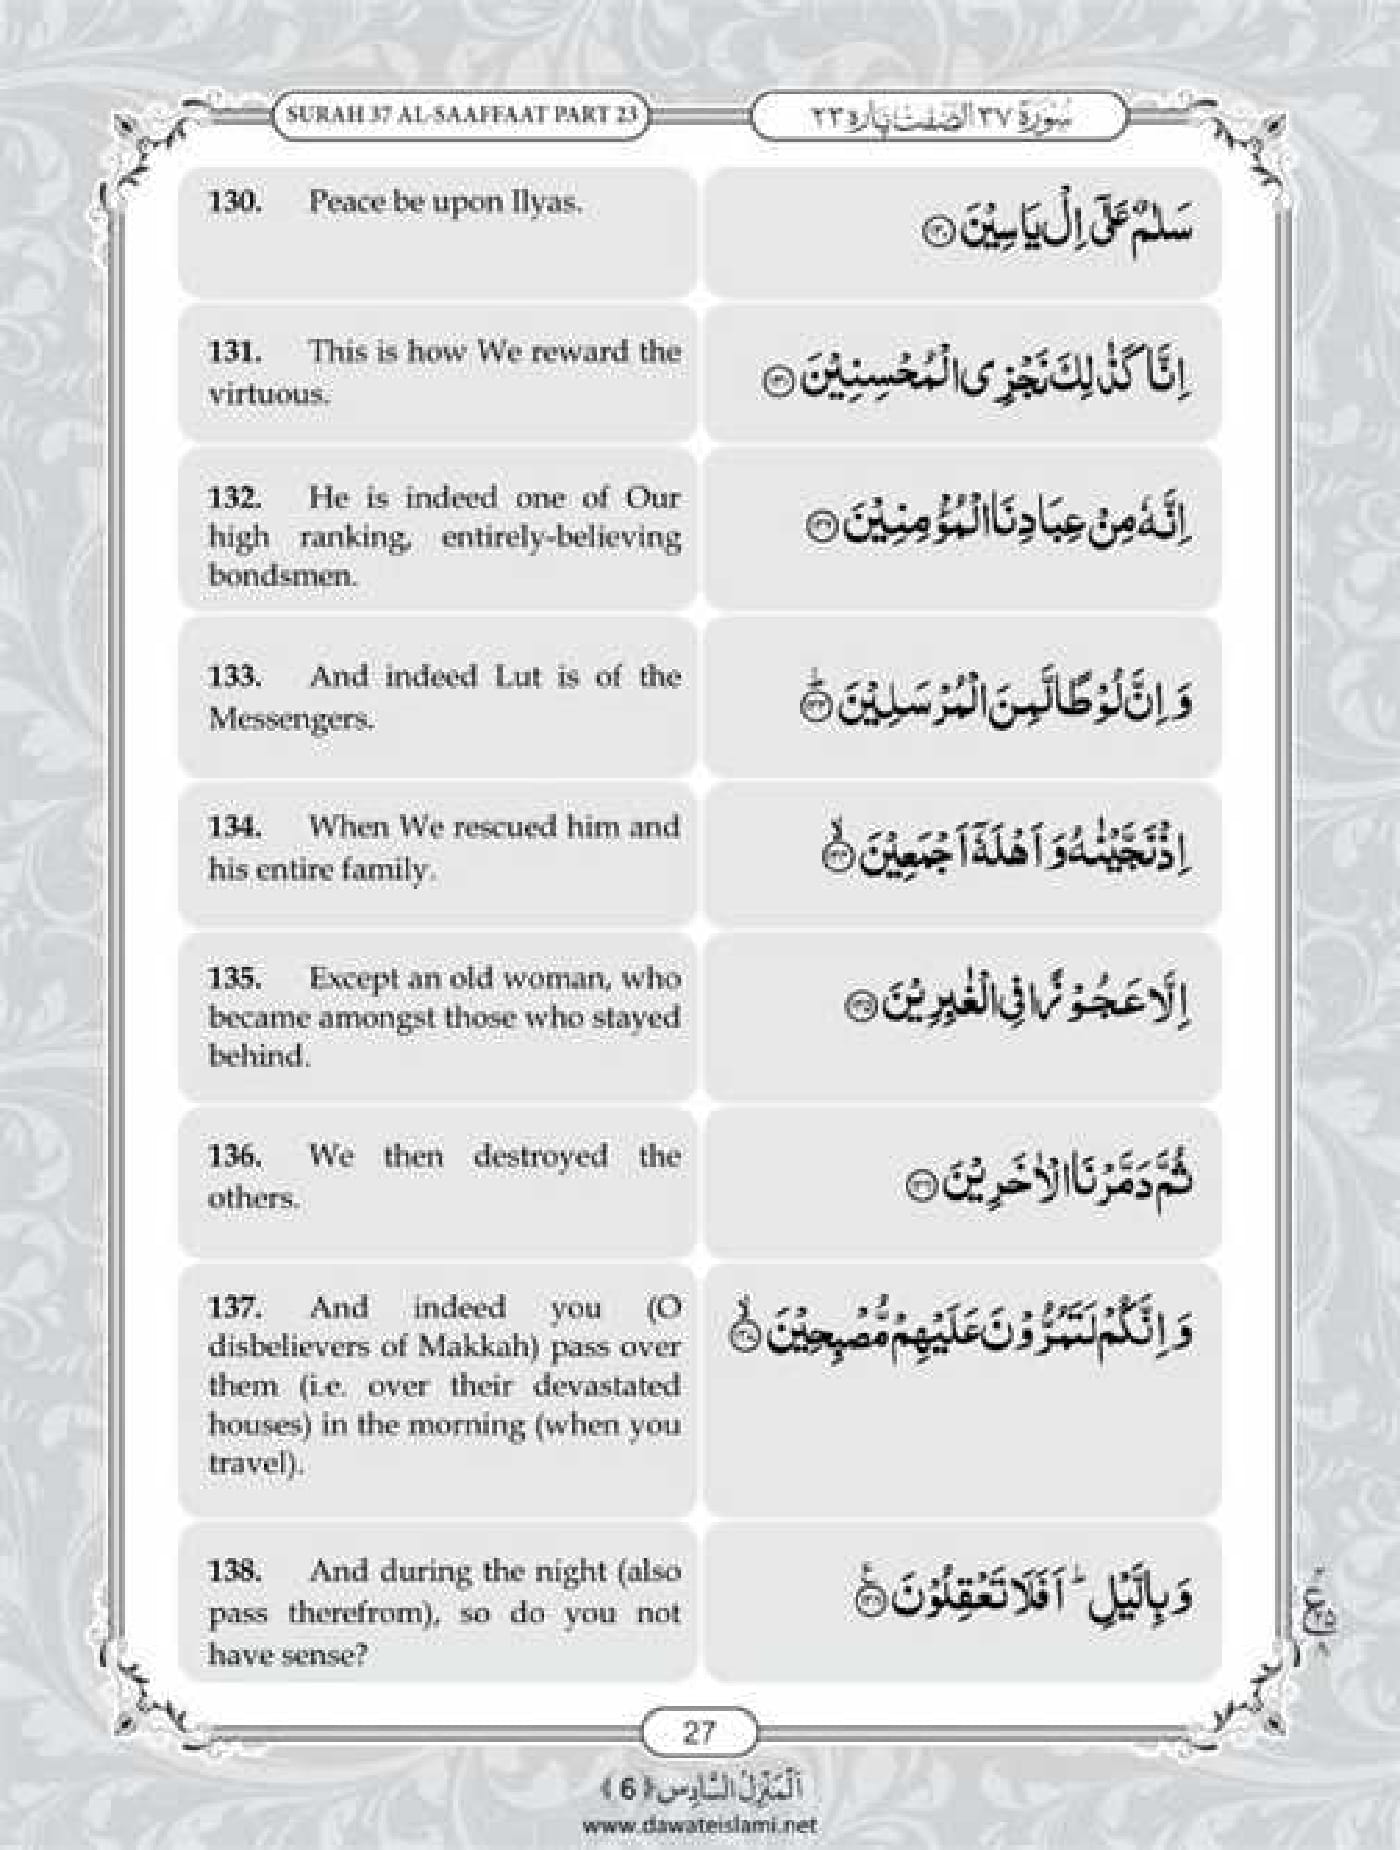 SURAH 37 AL-SAAFFAAT PART 23
سُوْرَة ٣٧ الصّٰٓفّٰت پاره ٢٣
130. Peace be upon Ilyas.
سَلٰمٌ عَلٰۤی اِلْ یَاسِیْنَ ﴿۱۳۰﴾
131. This is how We reward the
virtuous.
اِنَّا كَذٰلِكَ نَجْزِی الْمُحْسِنِیْنَ ﴿۱۳۱﴾
132. He is indeed one of Our
high ranking, entirely-believing
bondsmen.
اِنَّهٗ مِنْ عِبَادِنَا الْمُؤْمِنِیْنَ ﴿۱۳۲﴾
133. And indeed Lut is of the
Messengers.
وَ اِنَّ لُوْطًا لَّمِنَ الْمُرْسَلِیْنَ ﴿۱۳۳﴾ؕ
134. When We rescued him and
his entire family.
اِذْ نَجَّیْنٰهُ وَ اَهْلَهٗۤ اَجْمَعِیْنَ ﴿۱۳۴﴾ۙ
135. Except an old woman, who
became amongst those who stayed
behind.
اِلَّا عَجُوْزًا فِی الْغٰبِرِیْنَ ﴿۱۳۵﴾
136. We then destroyed the
others.
ثُمَّ دَمَّرْنَا الْاٰخَرِیْنَ ﴿۱۳۶﴾
137. And indeed you (O
disbelievers of Makkah) pass over
them (i.e. over their devastated
houses) in the morning (when you
travel).
وَ اِنَّكُمْ لَتَمُرُّوْنَ عَلَیْهِمْ مُّصْبِحِیْنَ ﴿۱۳۷﴾ۙ
138. And during the night (also
pass therefrom), so do you not
have sense?
وَ بِالَّیْلِ ؕ اَفَلَا تَعْقِلُوْنَ ﴿۱۳۸﴾
27
اَلْمَنْزِلُ السَّادِس ﴿6﴾
www.dawateislami.net